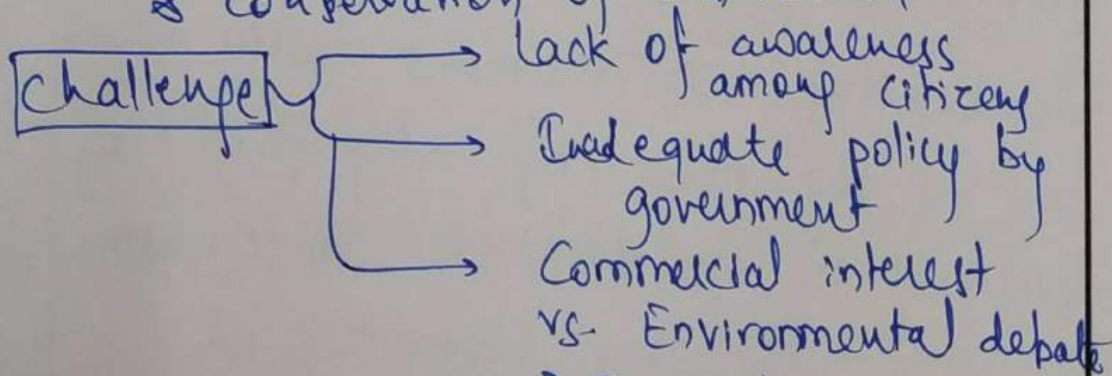 & conservation of
Challenge
lack of awareness
among citizens
Inadequate policy by
government
Commercial interest
vs. Environmental debate